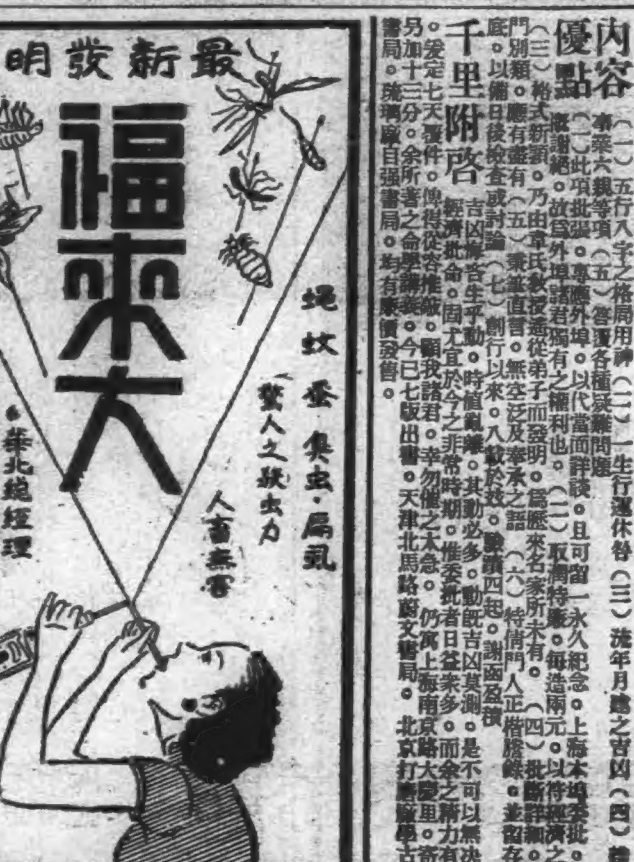 内容
(一)五行八字之格局用神(二)一生行運休咎(三)流年月建之吉凶(四)
事業六親等項(五)答覆各種疑難問題
優點
(一)此項批張。專應外埠。以代當面詳談。且可留一永久紀念。上海本埠委批。
概謝絕。故爲外埠諸君獨有之權利也。(二)取潤特廉。每造兩元。以符經濟之
(三)格式新穎。乃由韋氏教授遙從弟子而發明。爲歷來名家所未有。(四)批斷詳細。
門別類。應有盡有(五)秉筆直言。無空泛及奉承之語(六)特倩門人正楷謄錄。並留存
底。以備日後檢查或討論(七)創行以來。八載於茲。譽四起。謝函盈積
千里附啓
吉凶悔吝生乎動。時值亂離。其動必多。動旣吉凶莫測。是不可以無決
經濟批命。固尤宜於今之非常時期。惟委批者日益衆多。而余之精力有
。爰定七天覆件。俾得從容推敲。願我諸君。幸勿催之太急。仍寓上海南京路大慶里。寄
另加十三分。余所著之命學講義。今已七版出書。天津北馬路蔚文書局。北京打磨廠學古
書局。琉璃廠自强書局。均有廉價發售。
最新發明
福來大
蠅 蚊 蚤・臭虫・扁虱
驚人之殺虫力
人畜無害
華北總經理